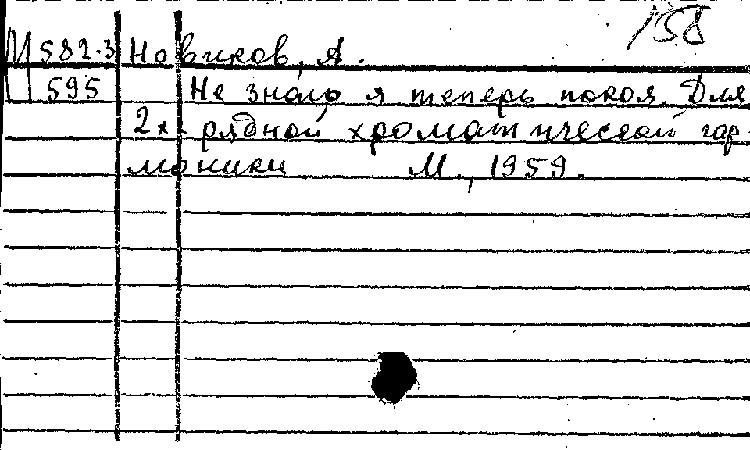 158
М 582.3 Новиков, А.
595 Не знаю я теперь покоя. Для
2х рядной хроматической гар-
моники М., 1959.